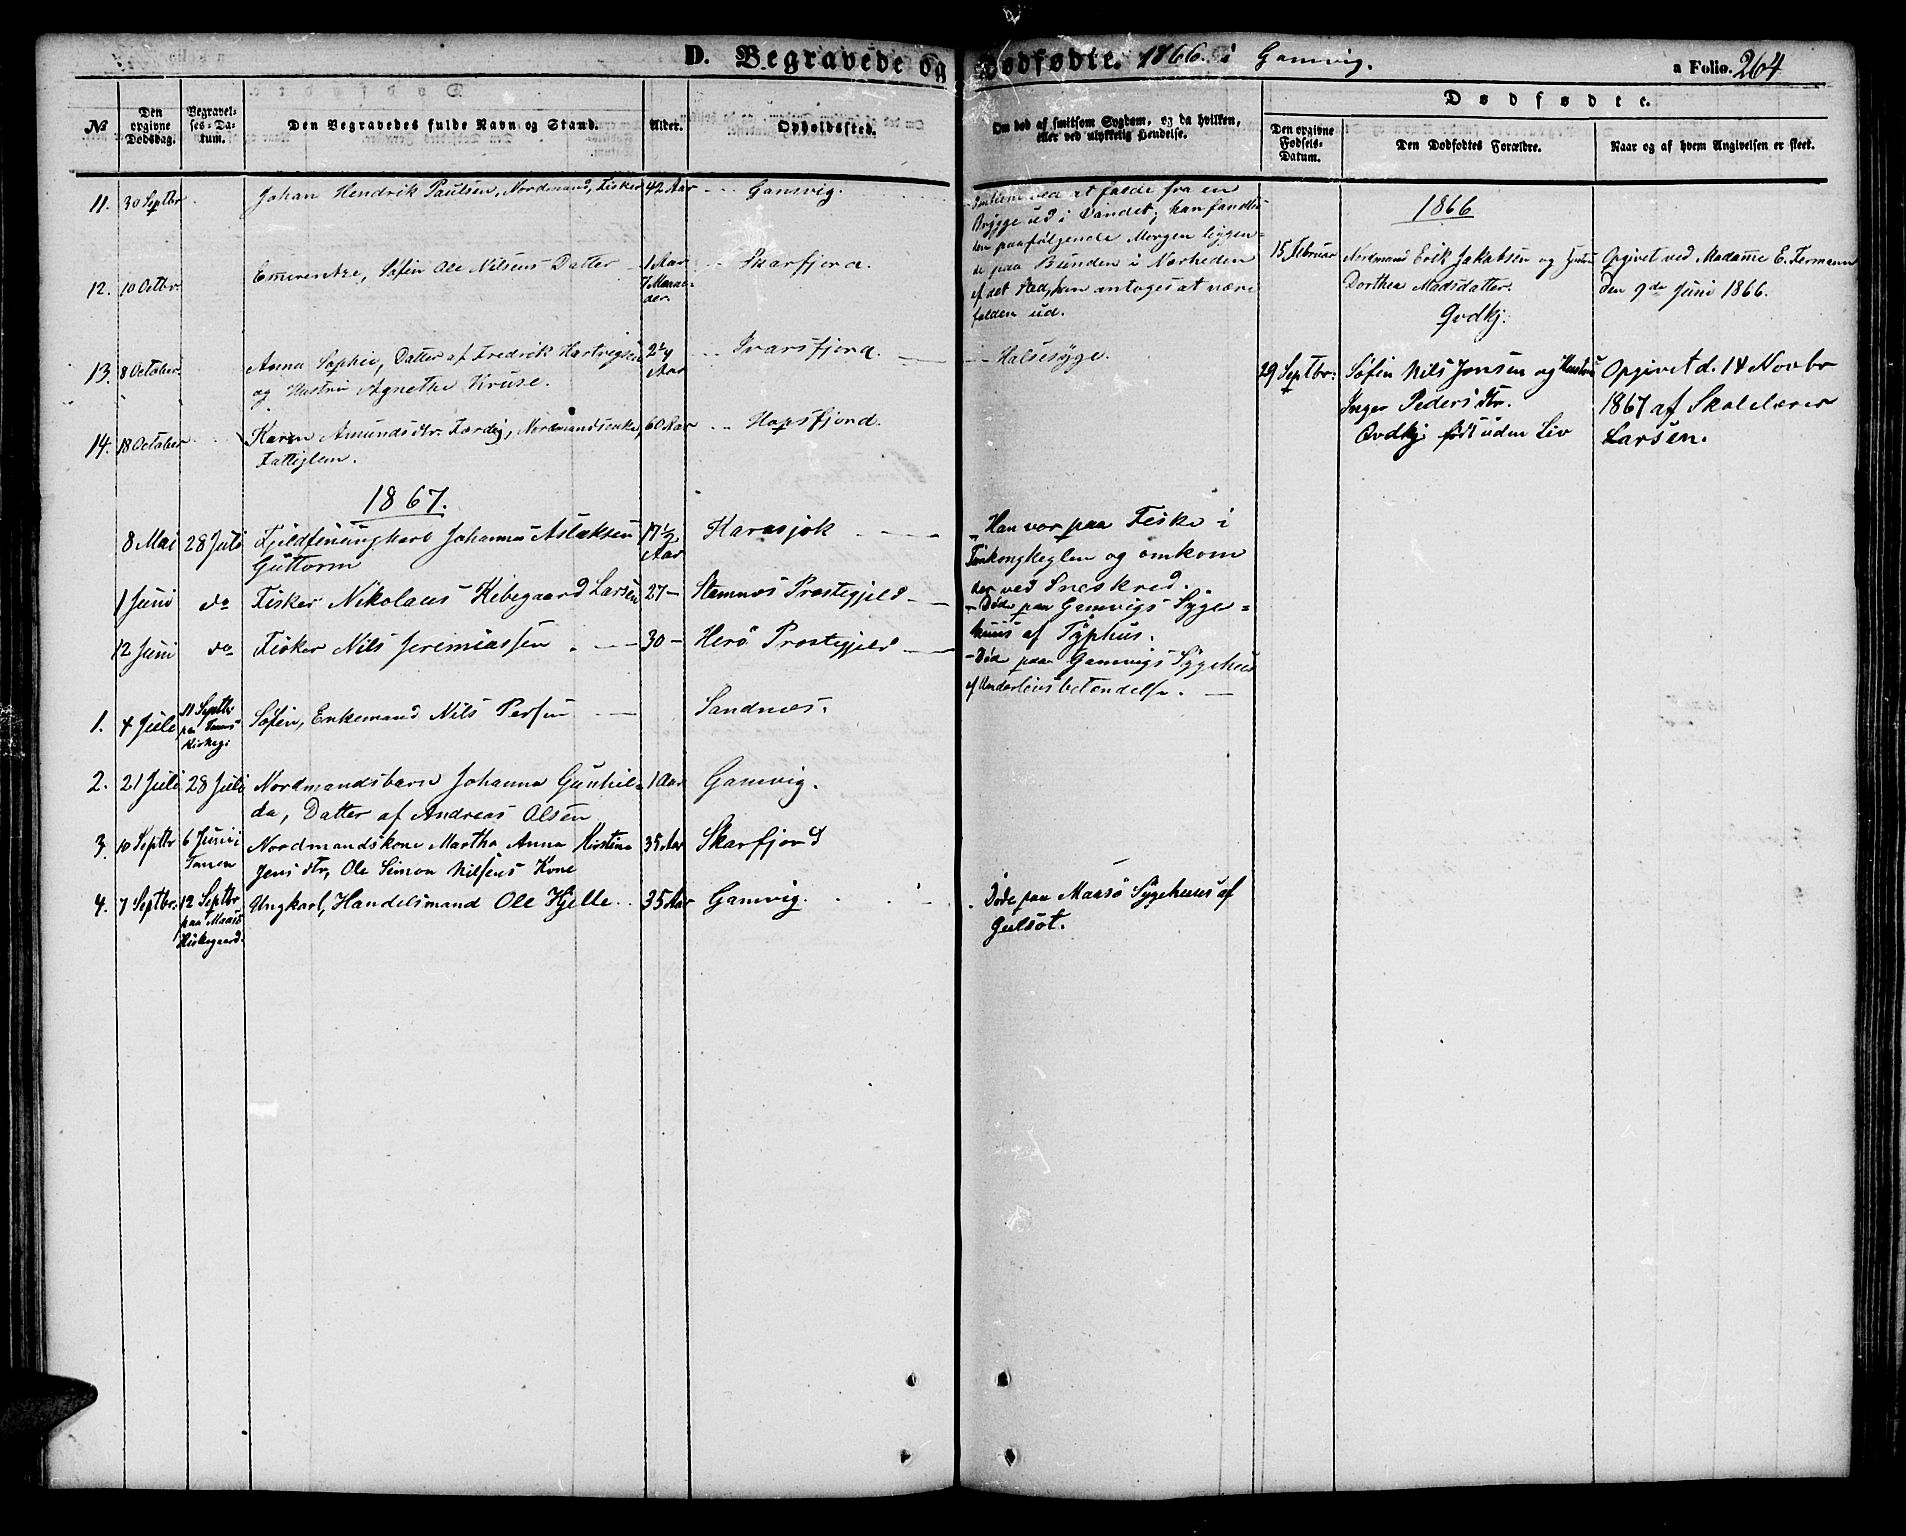 D. Begravede og Dødfødte. 1866 i Gamvig.
a Folio. 264
No
Den opgivne Dødsdag.
Begravelses-Datum.
Den Begravedes fulde Navn og Stand.
Alder.
Opholdssted.
Om død af smitsom Sygdom, og da hvilken, eller ved ulykkelig Hendelse.
Dødfødte.
Den opgivne Fødsels-Datum.
Den Dødfødtes Forældre.
Naar og af hvem Angivelsen er skeet.
11. 30 Septbr Johan Hendrik Paulsen, Nordmand, Fisker 42 Aar Gamvig.
ved at falde fra en
Brygge ud i Vandet; han fandtes
den paafølgende Morgen liggen-
de paa Bunden i Nærheden
af det Sted, han antoges at være
falden ud.
12. 10 Octbr. Emerentze, Søfin Ole Nilsens Datter 1 Aar
7 Maane-
der.
Skarfjord.
13. 8 October Anna Sophie, Datter af Fredrik Hartvigsen
og Hustru Agnethe Kruse.
2¼
Aar
Ivarsfjord. Halssyge.
14. 18 October Karen Amundsdtr. Færdig, Nordmandsenke,
Fattiglem.
60 Aar Hopsfjord.
1867.
8 Mai 28 Juli Fjeldfinungkarl Johannes Aslaksen
Guttorm
17½
Aar
Karasjok
Han var paa Fiske i
Finkongkeglen og omkom
der ved Sneskred.
1 Juni do Fisker Nikolaus Kibegaard Larsen 27 Stamnæs Præstegjeld
Døde paa Gamvigs Syge=
huus af Typhus.
12 Juni do Fisker Nils Jeremiassen 30 Herö Præstegjeld
Døde paa Gamvigs Sygehuus
af Underlivsbetændelse.
1. 4 Juli 11 Septbr
paa Tanens
Kirkeg:
Søfin, Enkemand Nils Persen Sandnæs.
2. 21 Juli 28 Juli Nordmandsbarn Johanna Gunhil-
da, Datter af Andreas Olsen
1 Aar Gamvig.
3. 10 Septbr 6 Juni i
Tanen
Nordmandskone Martha Anna Kirstine
Jensdtr, Ole Simon Nilsens Kone
35 Aar Skarfjord
4. 7 Septbr. 12 Septbr
paa Maasö
Kirkegaard.
Ungkarl, Handelsmand Ole Kjelle 35 Aar Gamvig.
Døde paa Maasö Sygehuus af
Gulsot.
1866
15 Februar Nordmand Erik Jakobsen og Hustru
Dorthea Madsdatter.
Qvdkj.
Opgivet ved Madame E. Fermann
den 9de Juni 1866.
29 Septbr: Søfin Nils Jonsen og Hustru
Inger Pedersdtr.
Qvdkj. født uden Liv
Opgivet d. 14 Novbr
1867 af Skolelærer
Larsen.